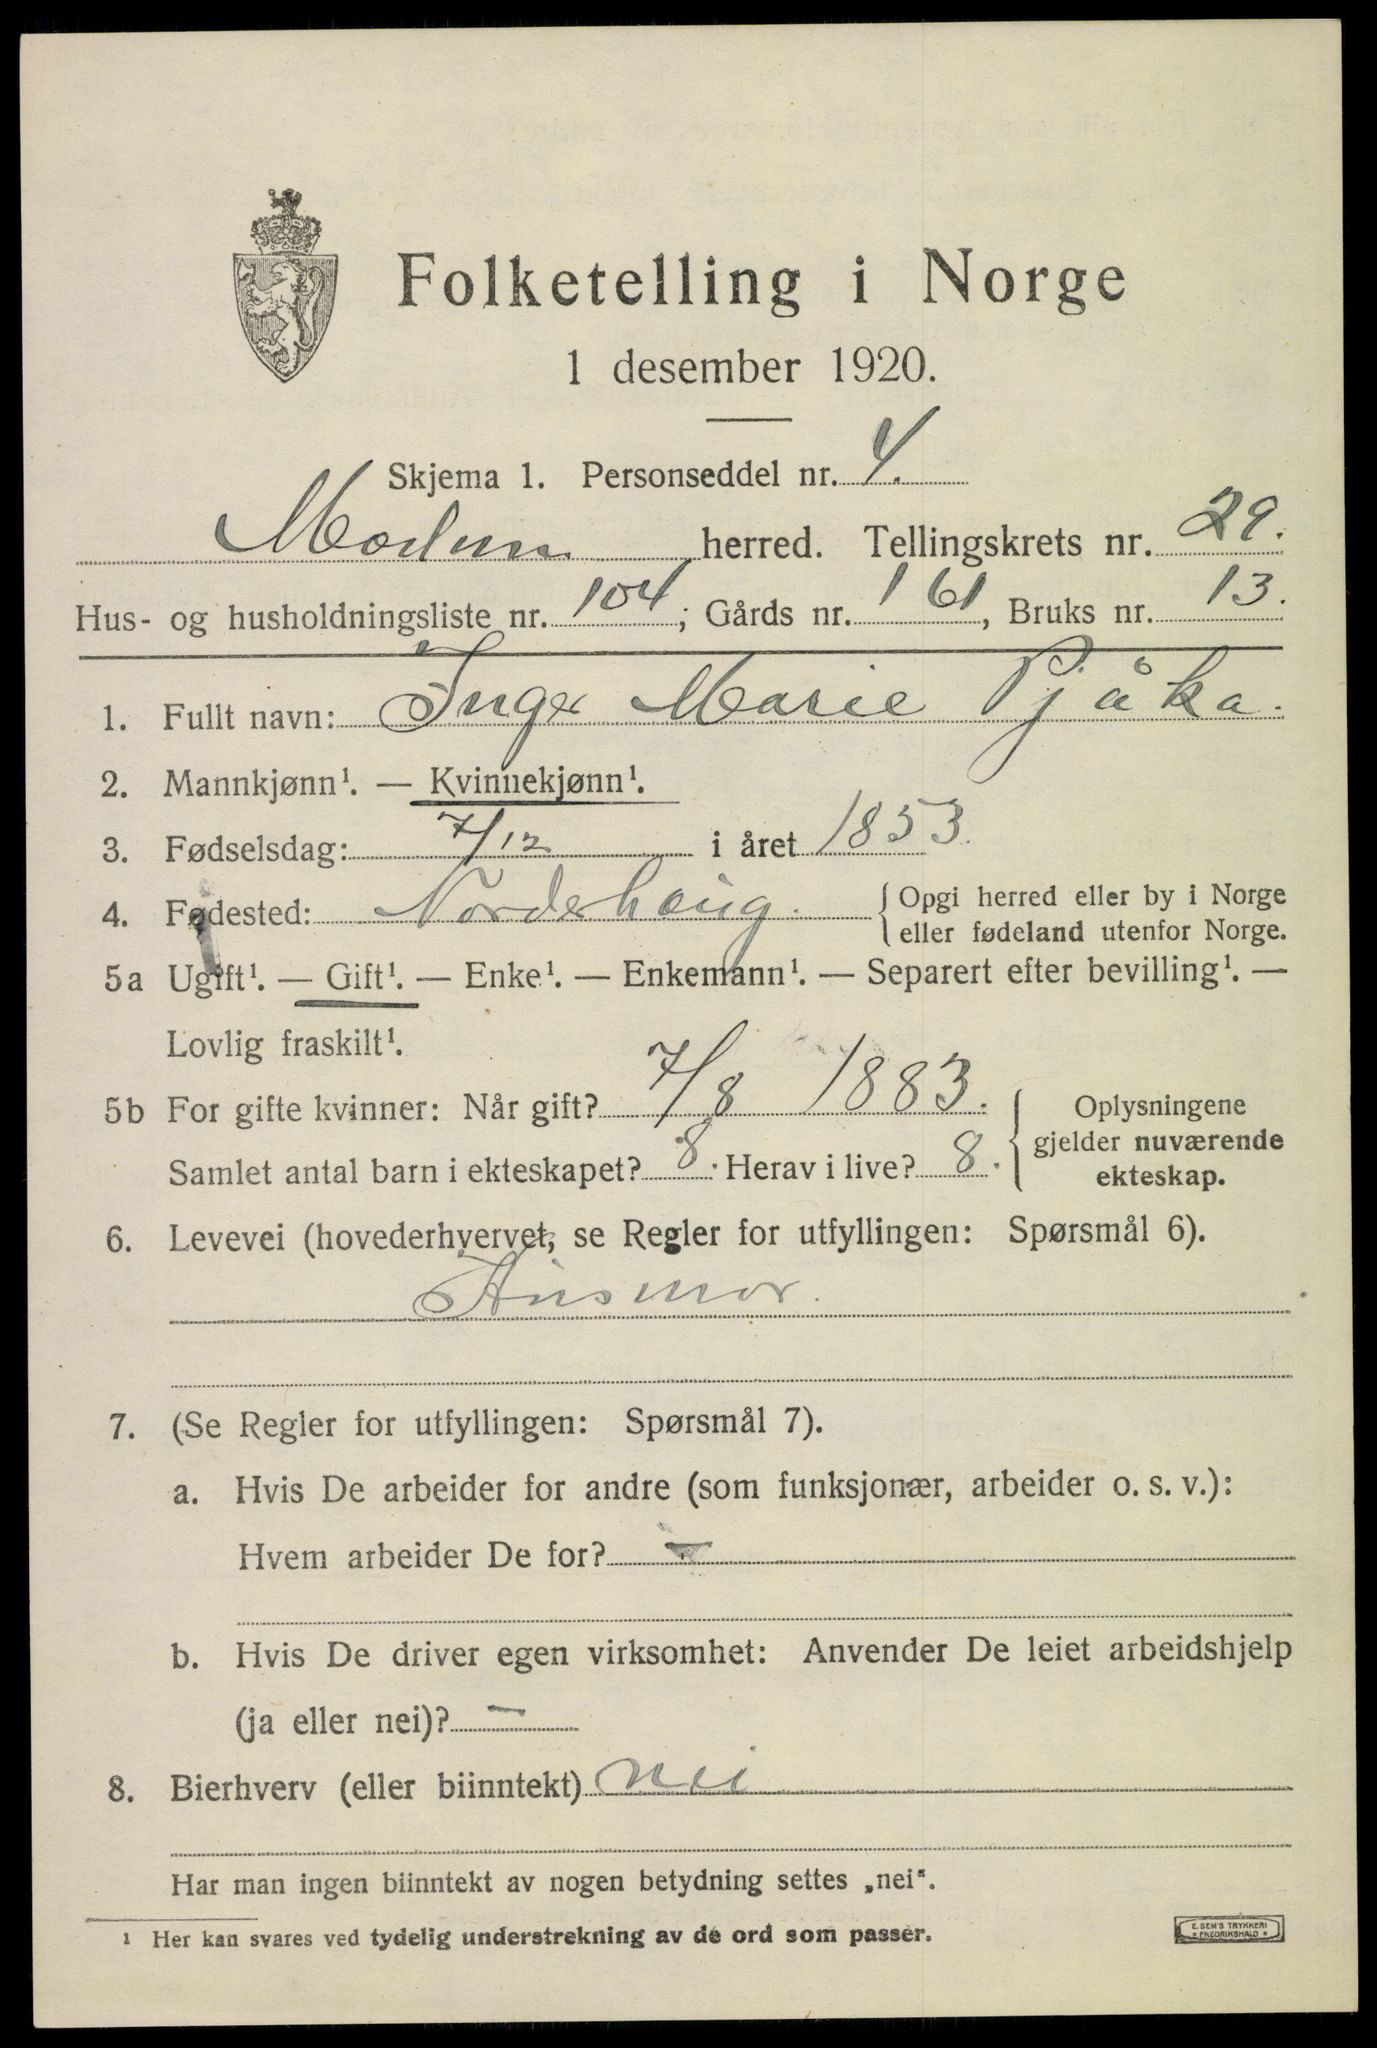 Folketelling i Norge
1 desember 1920.
Skjema 1. Personseddel nr. 4.
Modum herred. Tellingskrets nr. 29.
Hus- og husholdningsliste nr. 104; Gårds nr. 161, Bruks nr. 13.
1. Fullt navn: Inger Marie Pjåka.
2. Mannkjønn¹. — Kvinnekjønn¹.
3. Fødselsdag: 7/12 i året 1853.
4. Fødested: Norderhaug. {Opgi herred eller by i Norge
eller fødeland utenfor Norge.
5a Ugift¹. — Gift¹. — Enke¹. — Enkemann¹. — Separert efter bevilling¹. —
Lovlig fraskilt¹.
5b For gifte kvinner: Når gift? 7/8 1883. { Oplysningene
gjelder nuværende
Samlet antal barn i ekteskapet? 8. Herav i live? 8. ekteskap.
6. Levevei (hovederhvervet, se Regler for utfyllingen: Spørsmål 6).
Husmor.
7. (Se Regler for utfyllingen: Spørsmål 7).
a. Hvis De arbeider for andre (som funksjonær, arbeider o. s. v.):
Hvem arbeider De for? —
b. Hvis De driver egen virksomhet: Anvender De leiet arbeidshjelp
(ja eller nei)? —
8. Bierhverv (eller biinntekt) nei
Har man ingen biinntekt av nogen betydning settes „nei“.
¹ Her kan svares ved tydelig understrekning av de ord som passer.
E. SEM'S TRYKKERI
* FREDRIKSHALD *